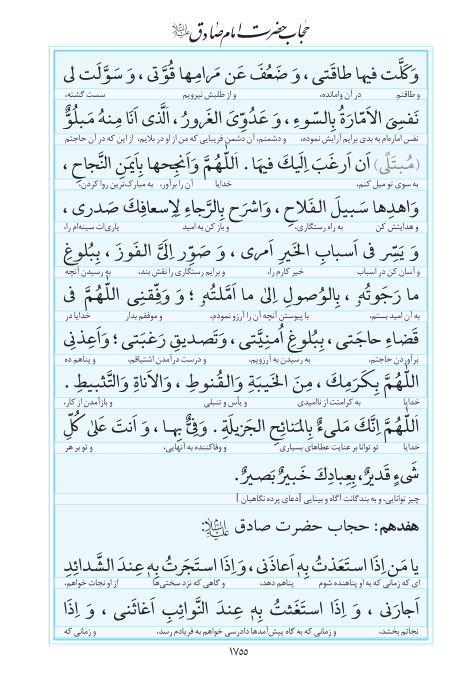 حجاب حضرت امام صادق علیه السلام
وَكَلَّت فيها طاقَتى ، وَ ضَعُفَ عَن مَرامِها قُوَّتى ، وَ سَوَّلَت لى
و طاقتم در آن وامانده، و از طلبش نیرویم سست گشته،
نَفسِىَ الاَمّارَةُ بِالسّوءِ ، وَ عَدُوِّىَ الغَرورُ ، اَلَّذى اَنَا مِنهُ مَبلُوٌّ
نفس امارہ‌ام به بدی برایم آرایش نموده، و دشمنم، آن دشمن فریبایی که من از او در بلایم، از این که در آن حاجتم
(مُبتَلًى) اَن اَرغَبَ اِلَيكَ فيها . اَللّٰهُمَّ وَاَنجِحها بِاَيمَنِ النَّجاحِ ،
به سوی تو میل کنم، خدایا آن را برآور، به مبارک‌ترین روا کردن،
وَاهدِها سَبيلَ الفَلاحِ ، وَاشرَح بِالرَّجاءِ لِاِسعافِكَ صَدرى ،
و هدایتش کن به راه رستگاری، و باز کن به امید یاری‌ات سینه‌ام را،
وَ يَسِّر فى اَسبابِ الخَيرِ اَمرى ، وَ صَوِّر اِلَىَّ الفَوزَ ، بِبُلوغِ
و آسان کن در اسباب خیر کارم را، و برایم رستگاری را نقش بند، به رسیدن آنچه
ما رَجَوتُهُ ، بِالوُصولِ اِلىٰ ما اَمَّلتُهُ ؛ وَ وَفِّقنِى اللّٰهُمَّ فى
به آن امید بستم، با پیوستن آنچه آن را آرزو نموده، و موفقم بدار خدایا در
قَضاءِ حاجَتى ، بِبُلوغِ اُمنِيَّتى ، وَتَصديقِ رَغبَتى ؛ وَاَعِذنِى
برآوردن حاجتم، به رسیدن به آرزویم، و درست درآمدن اشتیاقم، و پناهم ده
اللّٰهُمَّ بِكَرَمِكَ ، مِنَ الخَيبَةِ وَالقُنوطِ ، وَالاَناةِ وَالتَّثبيطِ .
خدایا به کرامتت از ناامیدی و یأس و تنبلی و بازآمدن از کار،
اَللّٰهُمَّ اِنَّكَ مَلىءٌ بِالمَنائِحِ الجَزيلَةِ . وَفِىٌّ بِها ، وَ اَنتَ عَلىٰ كُلِّ
خدایا تو توانا بر عنایت عطاهای بسیاری و وفاکننده به آنهایی، و تو بر هر
شَىءٍ قَديرٌ، بِعِبادِكَ خَبيرٌ بَصيرٌ.
چیز توانایی، و به بندگانت آگاه و بینایی [دعای پرده نگاهبان]
هفدهم: حجاب حضرت صادق علیه السلام:
يا مَن اِذَا استَعَذتُ بِهِ اَعاذَنى ، وَاِذَا استَجَرتُ بِهِ عِندَ الشَّدائِدِ
ای که زمانی که به او پناهنده شوم پناهم دهد، و گاهی که نزد سختی‌ها از او نجات خواهم،
اَجارَنى ، وَ اِذَا استَغَثتُ بِهِ عِندَ النَّوائِبِ اَغاثَنى ، وَ اِذَا
نجاتم بخشد، و زمانی که به گاه پیش‌آمدها دادرسی خواهم به فریادم رسد، و زمانی که
۱۷۵۵